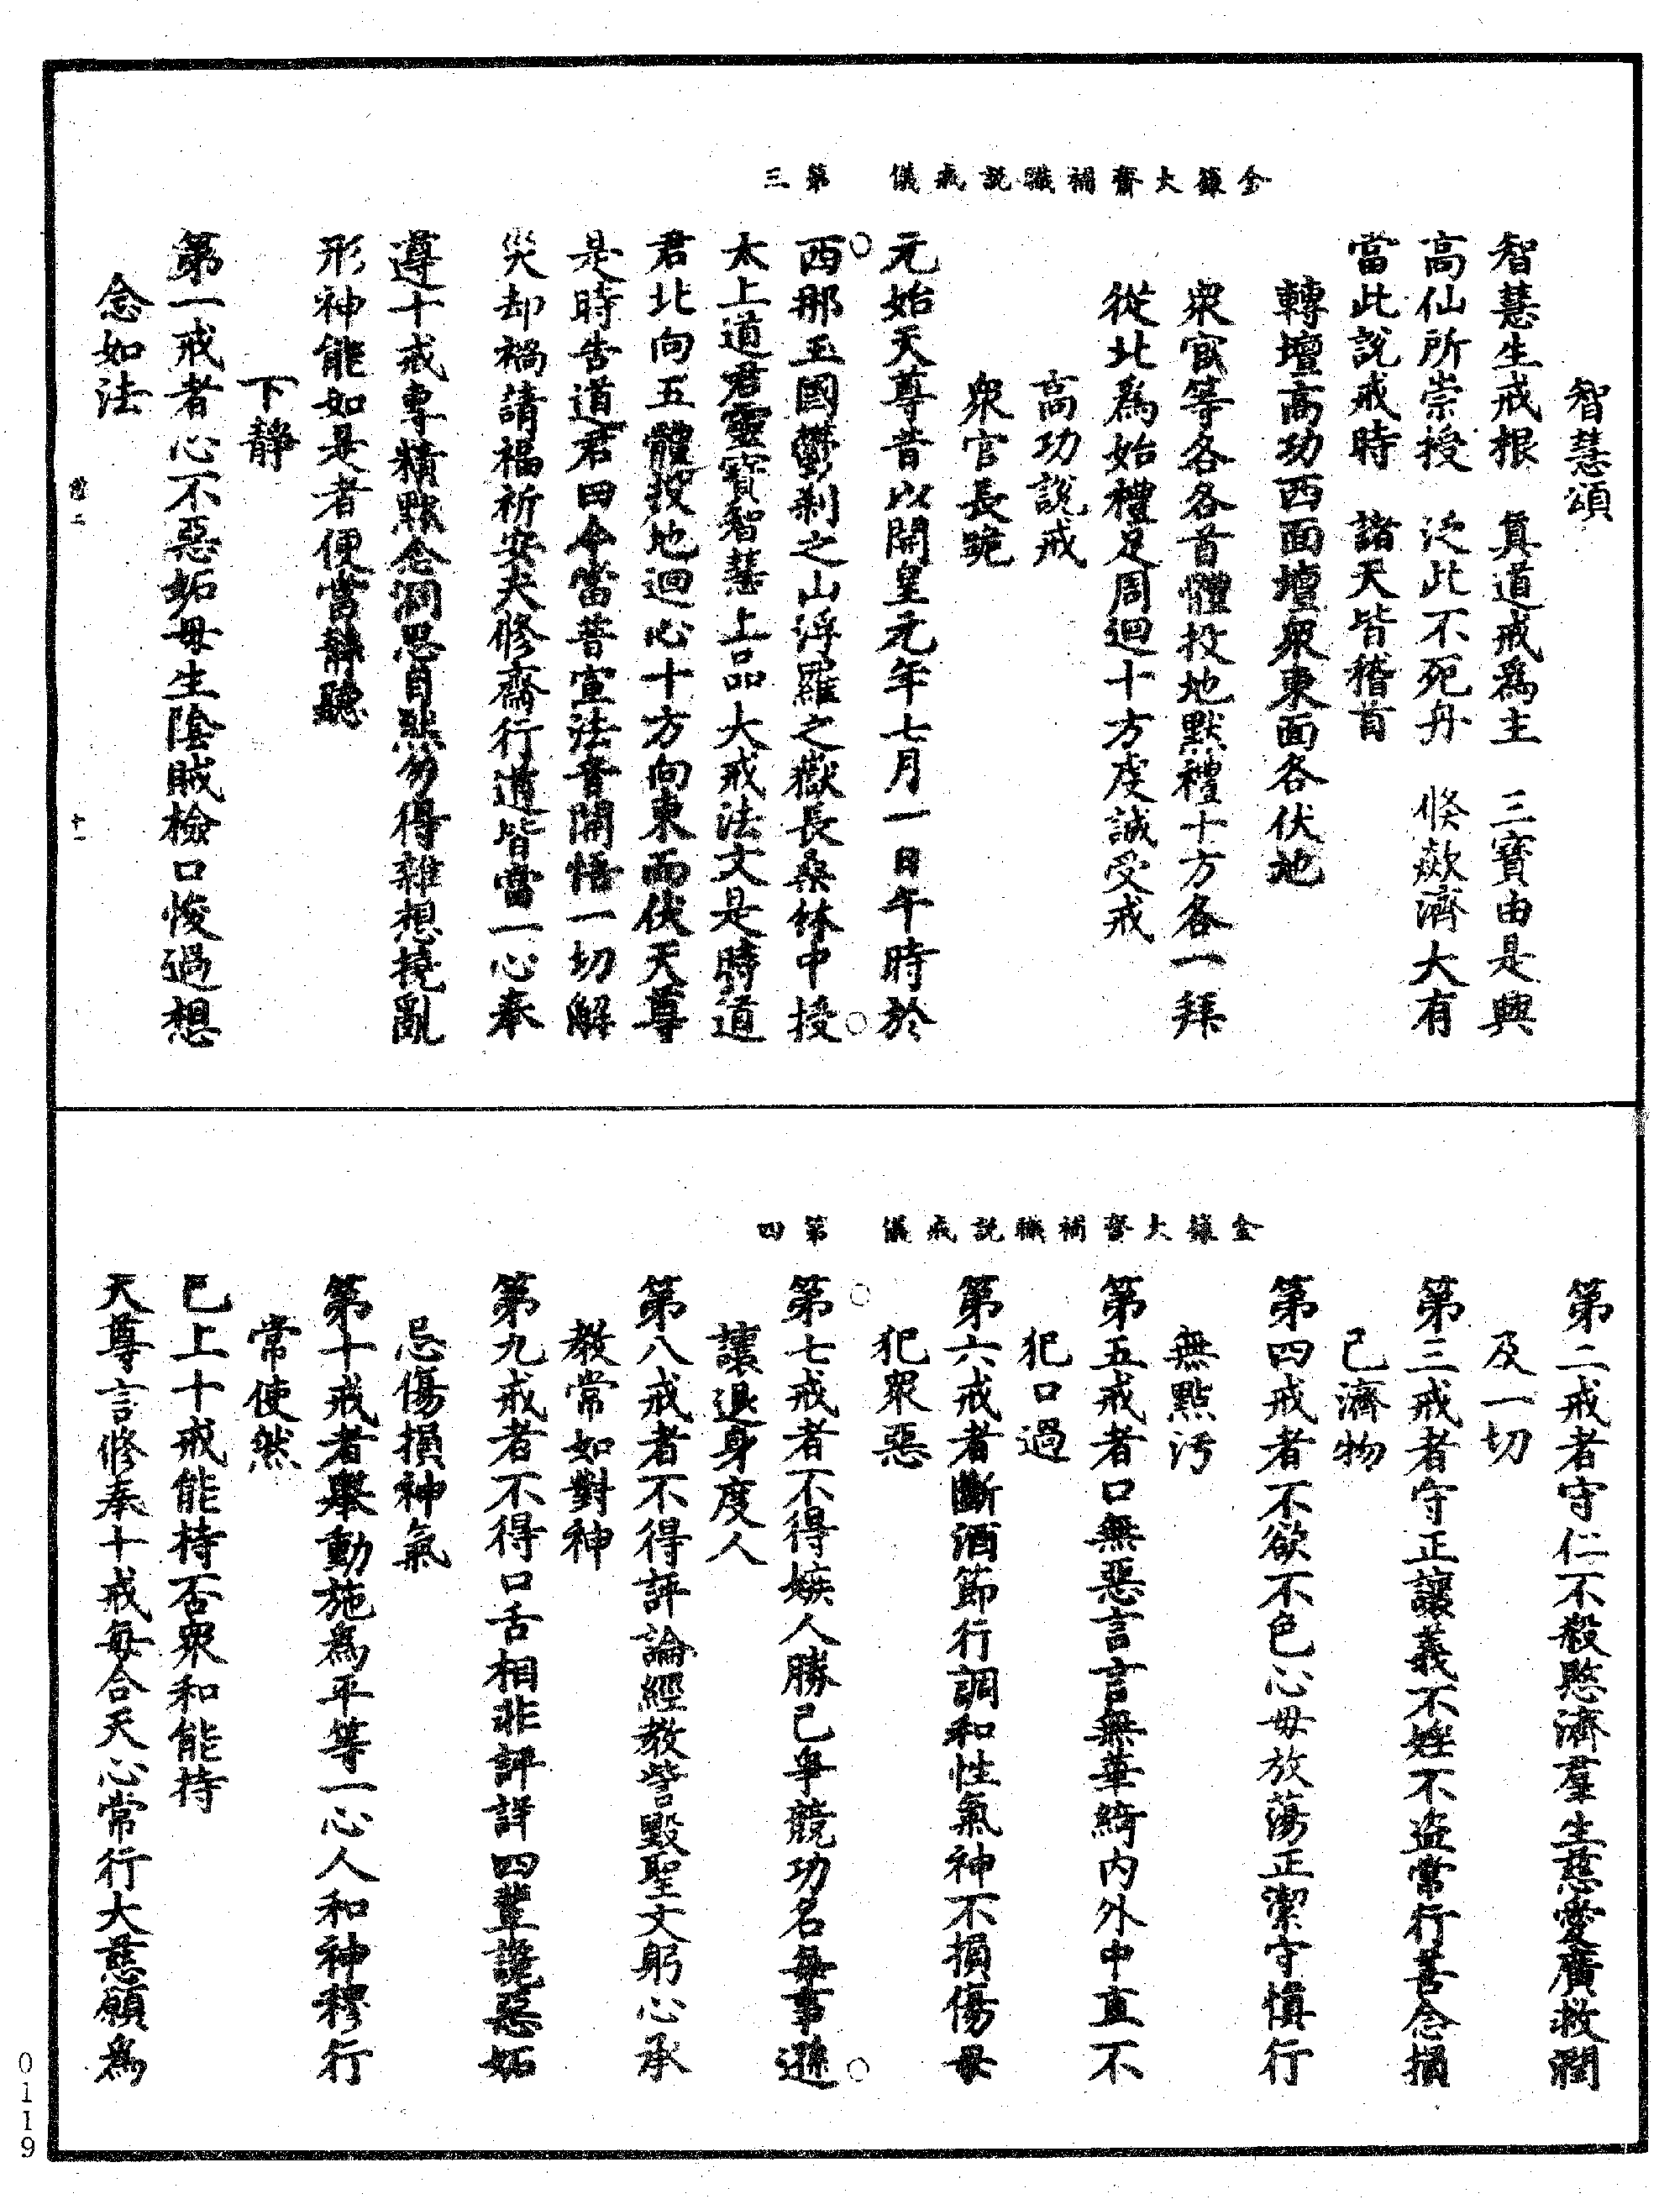 金籙大齋補職說戒儀　第三
智慧頌
智慧生戒根　真道戒爲主　三寳由是興
高仙所崇授　泛此不死舟　倐歘濟大有
當此說戒時　諸天皆稽首
轉壇高功西面壇衆東面各伏地
衆官等各各首體投地默禮十方各一拜
從北爲始禮足周迴十方虔誠受戒
高功說戒
衆官長跪
元始天尊昔以開皇元年七月一日午時於
西那玉國鬱刹之山浮羅之嶽長桑林中授
太上道君靈寳智慧上品大戒法文是時道
君北向五體投地迴心十方向東而伏天尊
是時告道君曰今當普宣法音開悟一切解
災却禍請福祈安夫修齋行道皆當一心奉
遵十戒專精默念洞思自然勿得雜想撓亂
形神能如是者便當靜聽
下靜
第一戒者心不惡妬毋生陰賊檢口悛過想
念如法
十一
金籙大齋補職說戒儀　第四
第二戒者守仁不殺愍濟羣生慈愛廣救潤
及一切
第三戒者守正讓義不婬不盜常行善念損
己濟物
第四戒者不欲不色心毋放蕩正潔守慎行
無點污
第五戒者口無惡言言無華綺內外中直不
犯口過
第六戒者斷酒節行調和性氣神不損傷毋
犯衆惡
第七戒者不得嫉人勝己爭競功名每事遜
讓退身度人
第八戒者不得評論經教訾毀聖文躬心承
教常如對神
第九戒者不得口舌相非評詳四輩譏惡妬
忌傷損神氣
第十戒者舉動施爲平等一心人和神穆行
常使然
已上十戒能持否衆和能持
天尊言修奉十戒每合天心常行大慈願爲
0119